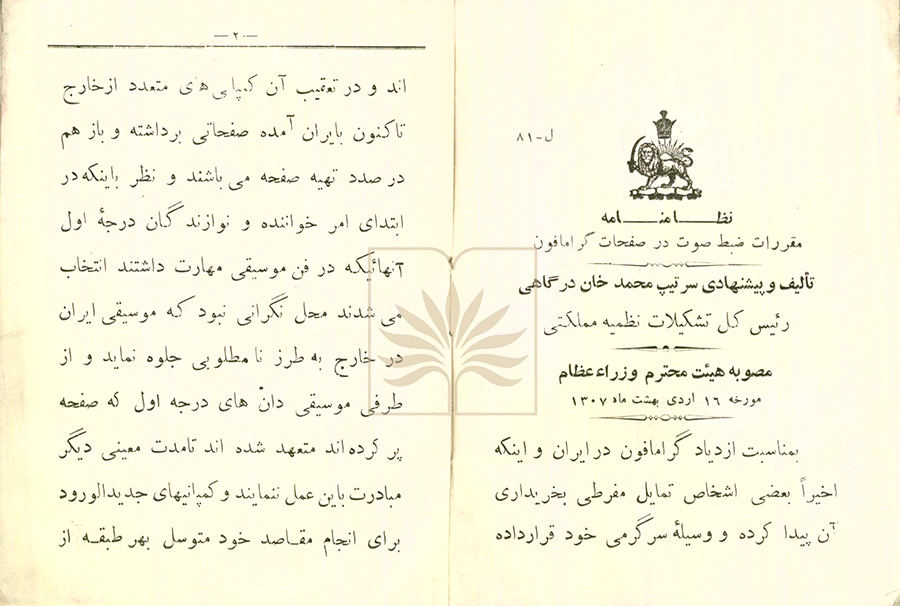 ل-۸۱
نظامنامه
مقررات ضبط صوت در صفحات گرامافون
تألیف و پیشنهادی سرتیپ محمد خان درگاهی
رئیس کل تشکیلات نظمیه مملکتی
مصوبه هیئت محترم وزراء عظام
مورخه ۱۶ اردی بهشت ماه ۱۳۰۷
بمناسبت ازدیاد گرامافون در ایران و اینکه
اخیراً بعضی اشخاص تمایل مفرطی بخریداری
آن پیدا کرده و وسیلهٔ سرگرمی خود قرارداده
— ۲ —
اند و در تعقیب آن کمپانی های متعدد از خارج
تاکنون بایران آمده صفحاتی برداشته و باز هم
در صدد تهیه صفحه می باشند و نظر باینکه در
ابتدای امر خواننده و نوازند گان درجهٔ اول
آنهائیکه در فن موسیقی مهارت داشتند انتخاب
می شدند محل نگرانی نبود که موسیقی ایران
در خارج به طرز نا مطلوبی جلوه نماید و از
طرفی موسیقی دان های درجه اول که صفحه
پر کرده اند متعهد شده اند تامدت معینی دیگر
مبادرت باین عمل ننمایند و کمپانیهای جدیدالورود
برای انجام مقاصد خود متوسل بهر طبقه از